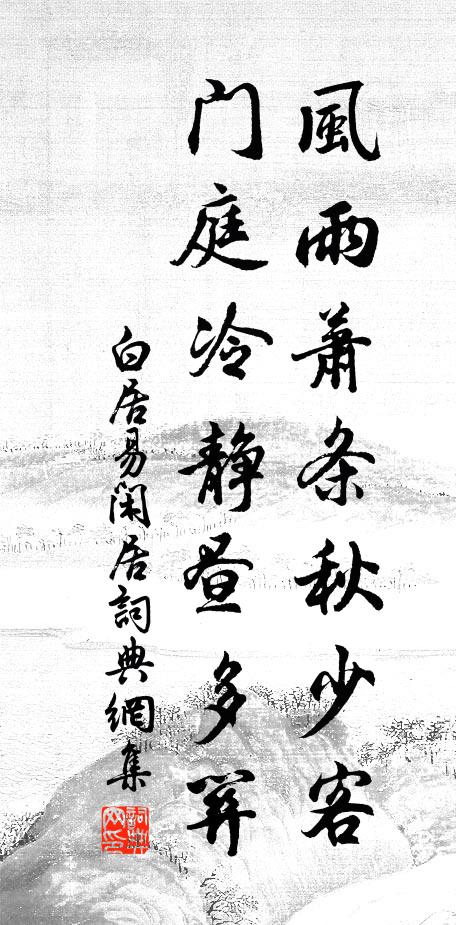 風雨蕭条秋少客
門庭冷静昼多関
白居易閑居詞典網集